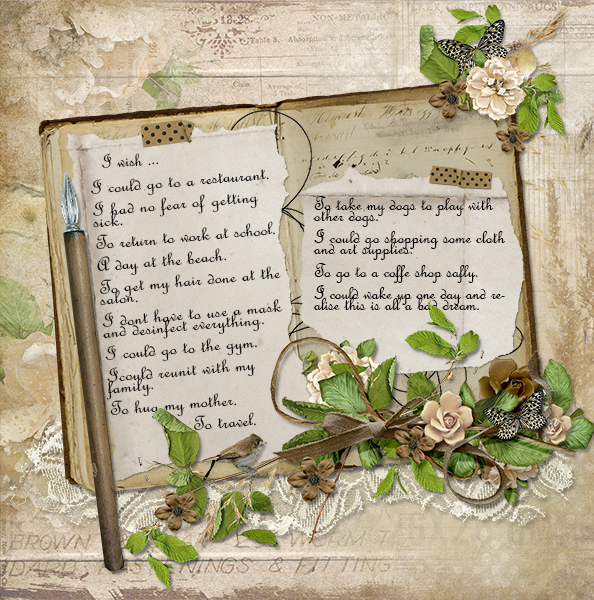 18-28.
NON-METALLIC
Table 3. Absorption and
Class
Average of
5 Tests
I wish ...
I could go to a restaurant.
I had no fear of getting
sick.
To return to work at school.
A day at the beach.
To get my hair done at the
salon.
I dont have to use a mask
and desinfect everything.
I could go to the gym.
I could reunit with my
family.
To hug my mother.
To travel.
To take my dogs to play with
other dogs.
I could go shopping some cloth
and art supplies.
To go to a coffe shop safly.
I could wake up one day and re-
alise this is all a bad dream.
BROWN
& FITTING